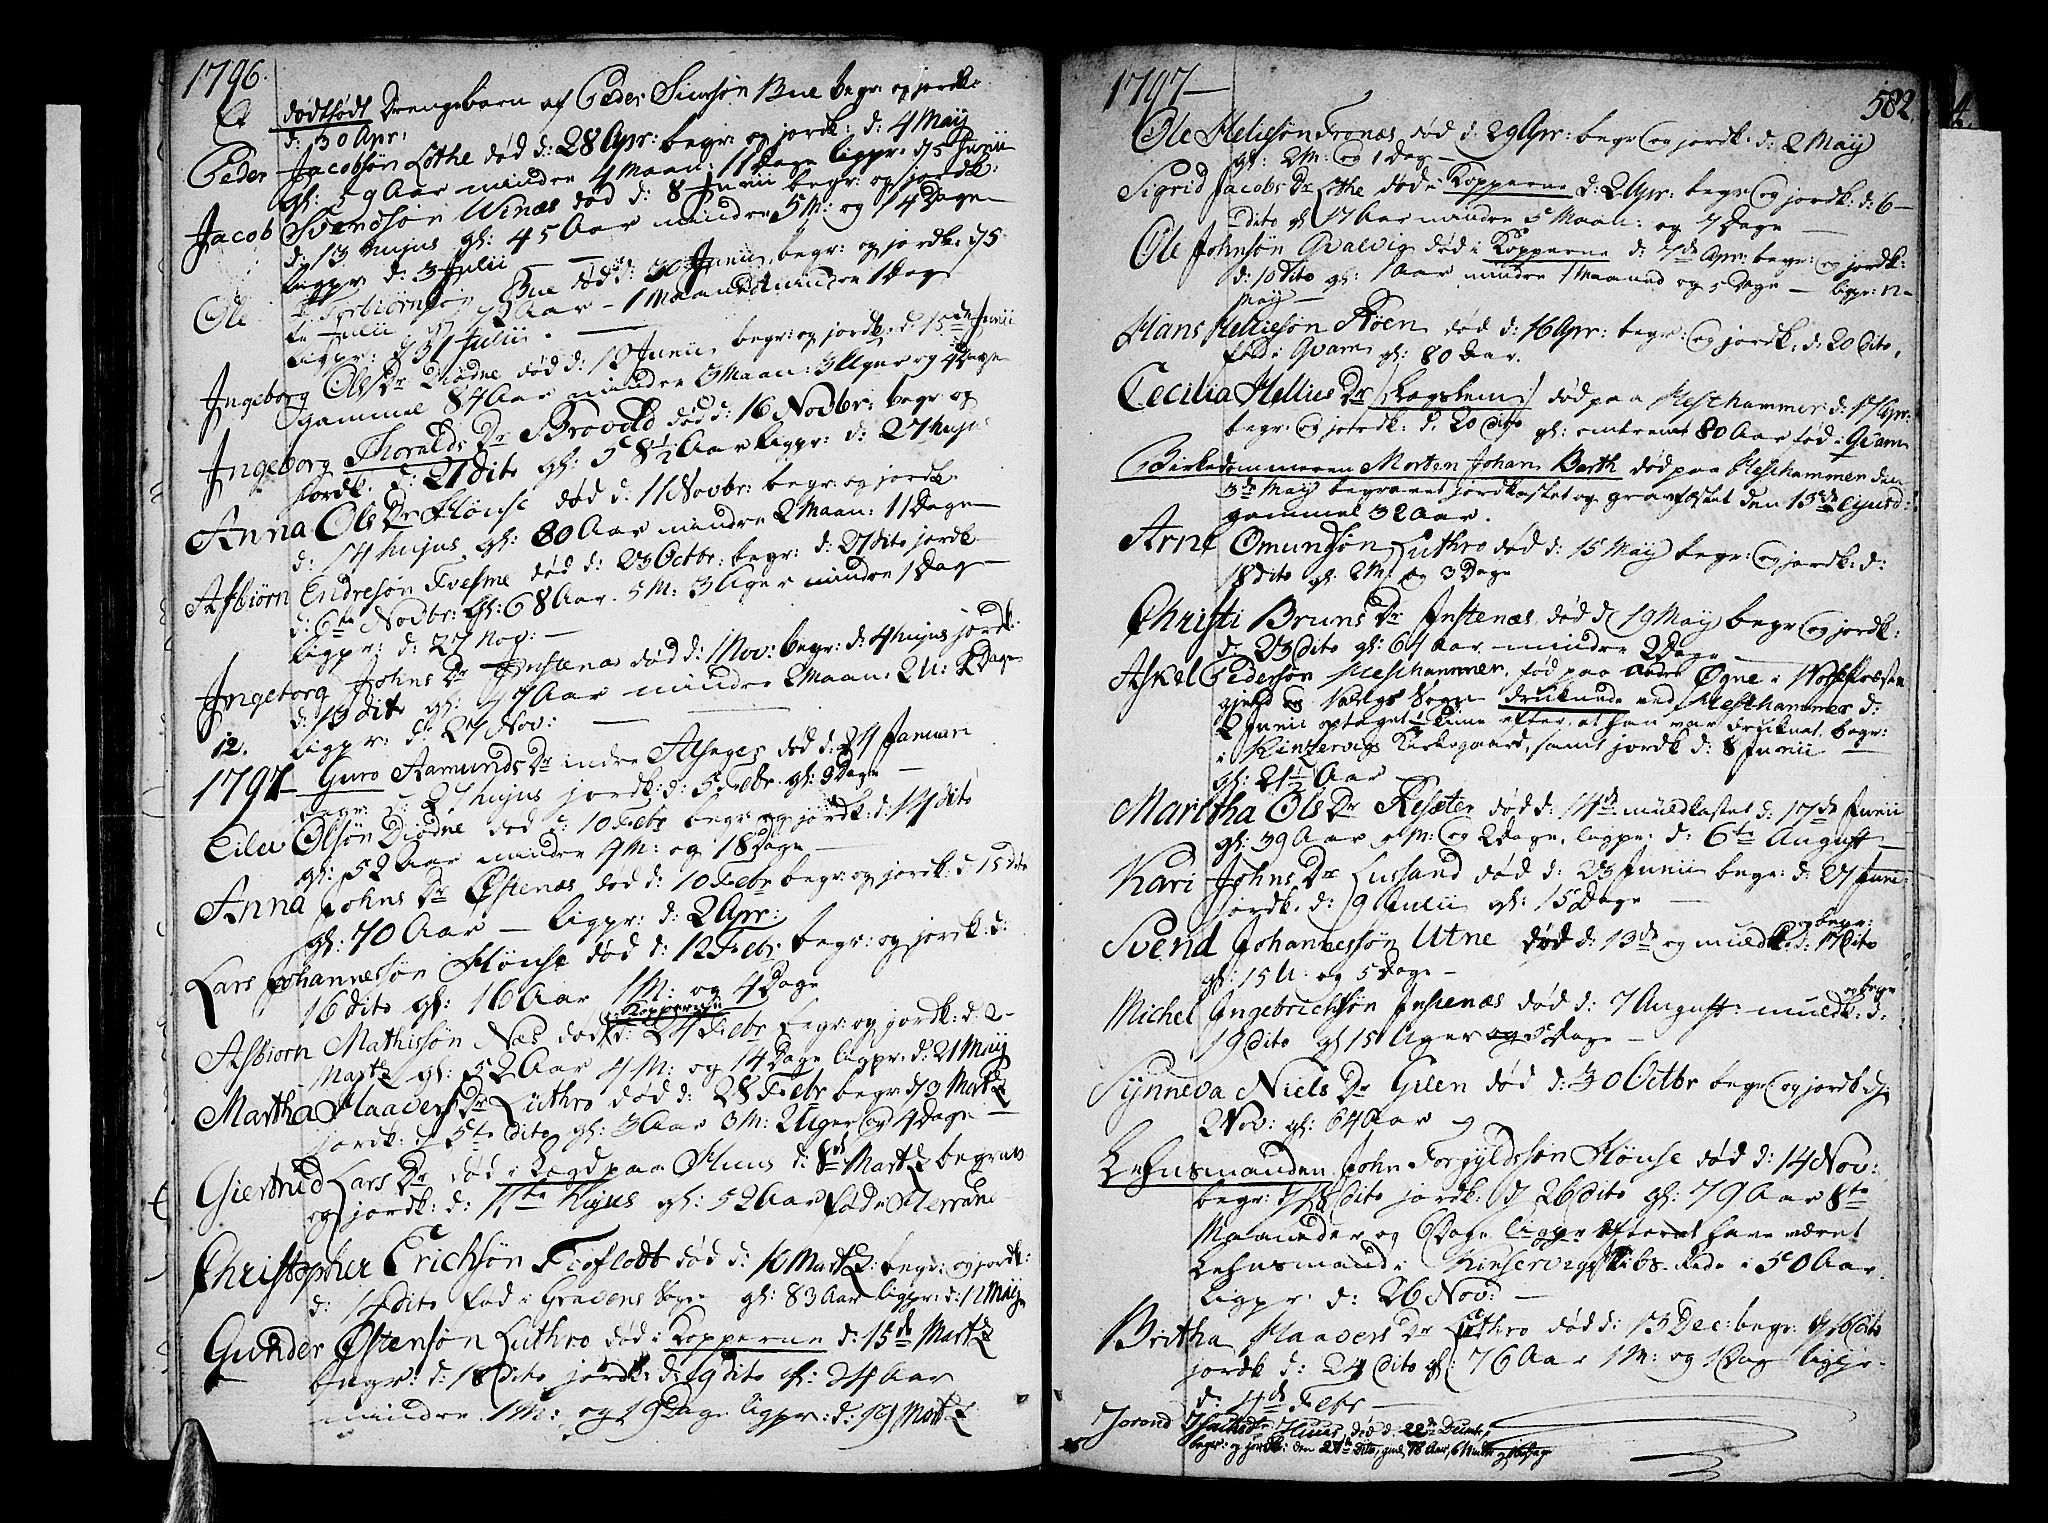 1796.
Et dødfødt Drengebarn af Peder Simsøn Bue begr: og jordk:
d: 30 Apr:
Peder Jacobsøn Lothe død d: 28 Apr: begr: og jordk: d: 4 May
gl: 59 Aar mindre 4 Maan: 11 Dage ligpr: d 5 Junii
Jacob Svendsøn Winæs død d: 8 Junii begr: og jordk:
d: 13 hujus gl: 45 Aar mindre 5 M: og 14 Dage
ligpr: d: 3 Julii
Ole Torbiørnsøn Bue død d: 30 Junii begr: og jordk: d 5
Julii gl: Aar - 1 Maaned mindre 1 Dag
ligpr: d 31 Julii.
Ingeborg Ols Dr Diødne død d: 10 Junii begr: og jordk: d: 15de Junii
gammel 84 Aar mindre 3 Maan: 3 Uger og 4 Dage
Ingeborg Thoralds Dr Brovold død d: 16 Novbr: begr og
jordk. d: 21 dito gl: 58 1/2 Aar ligpr: d: 27 hujus
Anna Ols Dr Hønse død d: 11 Novbr: begr: og jordk:
d: 14 hujus gl: 80 Aar mindre 2 Maan: 11 Dage
Asbiørn Endresøn Tvesme død d: 23 Octbr: begr: d: 27 dito jordk
d: 6te Novbr: gl: 68 Aar. 5 M: 3 Uger mindre 1 Dag
ligpr: d: 27 Nov:
Ingeborg Johns Dr Instenæs død d: 1 Nov: begr: d: 4 hujus jordk:
d: 13 dito gl: Aar mindre 2 Maan: 2 U: 2 Dage
12. ligpr: d: 27 Nov:
1797 Guro Aamunds Dr indre Alsager død d: 24 Januari
begr: d: 27 hujus jordk: d: 5 Febr. gl: 9 Dage
Eilev Olsøn Diødne død d: 10 Febr begr: og jordk: d: 14 dito
gl: 52 Aar mindre 4 M: og 18 Dage
Anna Johns Dr Østenæs død d: 10 Febr begr: og jordk: d 15 dito
gl: 70 Aar - ligpr: d: 2 Apr:
Lars Johannessøn Hønse død d: 12 Febr begr: og jordk: d:
16 dito gl: 16 Aar 1 M: og 4 Dage
i Kopperne
Asbiørn Mathissøn Næs død d: 24 Febr begr: og jordk: d: 2
Martz gl: 52 Aar 4 M: og 14 Dage ligpr: d: 21 May
Martha Haavers Dr Luthro død d: 28 Febr begr: d 3 Martz
jordk: d 5te dito gl: 3 Aar 3 M: 2 Uger og 4 Dage
Giertrud Lars Dr død i Lægd paa Huus d: 8de Martz begravt
og jordk: d: 11te hujus gl: 52 Aar født i
Christopher Erichsøn Tioflott død d: 10 Martz: begr: og jordk:
d: 14 dito fød i Gravens Sogn gl: 83 Aar ligpr: d: 12 May
Gunder Østensøn Luthro død i Kopperne d: 15de Martz
begr: d: 18 dito jordk: d: 19 dito gl: 24 Aar
mindre 1 M: og 19 Dage ligpr: d: 19 Martz
1797 582.
Ole Heliesøn Tronæs død d: 29 Apr: begr: og jordk: d: 2 May
gl: 2 M: og 1 Dag
Sigrid Jacobs Dr Lothe død i Kopperne d: 2 Apr: begr: og jordk: d: 6
dito gl: 17 Aar mindre 5 Maan: og 7 Dage
Ole Johnsøn Qvalvig død i Kopperne d: 7de Apr: begr: og jordk:
d: 10 dito gl: 1 Aar mindre 1 Maaned og 5 Dage - ligpr:
May
Hans Helliesøn Røen død d: 16 Apr: begr: og jordk: d: 20 dito,
fød i Qvam gl: 80 Aar.
Cecilia Hellius Dr /: :/ død paa Hesthammer d: 17 Apr:
begr: og jordk: d: 20 dito gl: omtrent 80 Aar fød i Qvam
Birkedommeren Morten Johan Barth død paa Hesthammer den
3de May begravet jordkastet og gravfæstet den 15de ejusd:
gammel 32 Aar.
Arne Omundsøn Luthro død d: 15 May begr: og jordk: d:
18 dito gl: 2 M: og 3 Dage
Christi Bruns Dr Instenæs død d 19 May begr: og jordk:
d: 23 dito gl: 64 Aar mindre 2 Dage
Askel Pedersøn Hesthammer, fød paa Øgne i Præste
gjeld og Sogn druknede ved Hesthammer d:
2 Junii optaget 1/2 Time efter, at han var druknet, begr:
i Kinzervigs Kirkegaard, samt jordk d: 8 Junii
gl: 21 1/2 Aar
Maritha Ols Dr Resæter død d: 14de muldkastet d: 17de Junii
gl: 39 Aar M: og 2 Dage, ligpr: d: 6te August
Kari Johns Dr Lussand død d: 23 Junii begr: d: 27 Juni
jordk: d: 9 Julii gl: 15 Dage
Svend Johannessøn Utne død d: 13de og muldk: og begr: d: 17 dito
gl: 15 U: og 5 Dage
Michel Ingebrichtsøn Instenæs død d: 7 August: muldk: og begr d:
19 dito gl 15 Uger og 5 Dage
Synneva Niels Dr Eilen død d: 30 Octbr begr: og jordk d:
2 Nov: gl: 64 Aar
Lehnsmanden John Torgyldssøn Hønse død d: 14 Nov:
begr: d 18 dito jordk: d 26 dito gl: 79 Aar 8te
Maaneder og 6 Dage ligpr efter at have været
Lehnsmand i Kinservigs Skibs Rede i 50 Aar.
ligpr: d: 26 Nov:
Britha Haavers Dr Luthro død d: 13 Dec: begr: d 16 dito
jordk d: 24 dito gl: 76 Aar 1 M: og 1 Dag ligpr:
d: 4de Febr
Jorond Huus, død d: 22de Decmbr,
begr: og jordk: den 27de dito, gml. 78 Aar, 6 Mndr og Dage